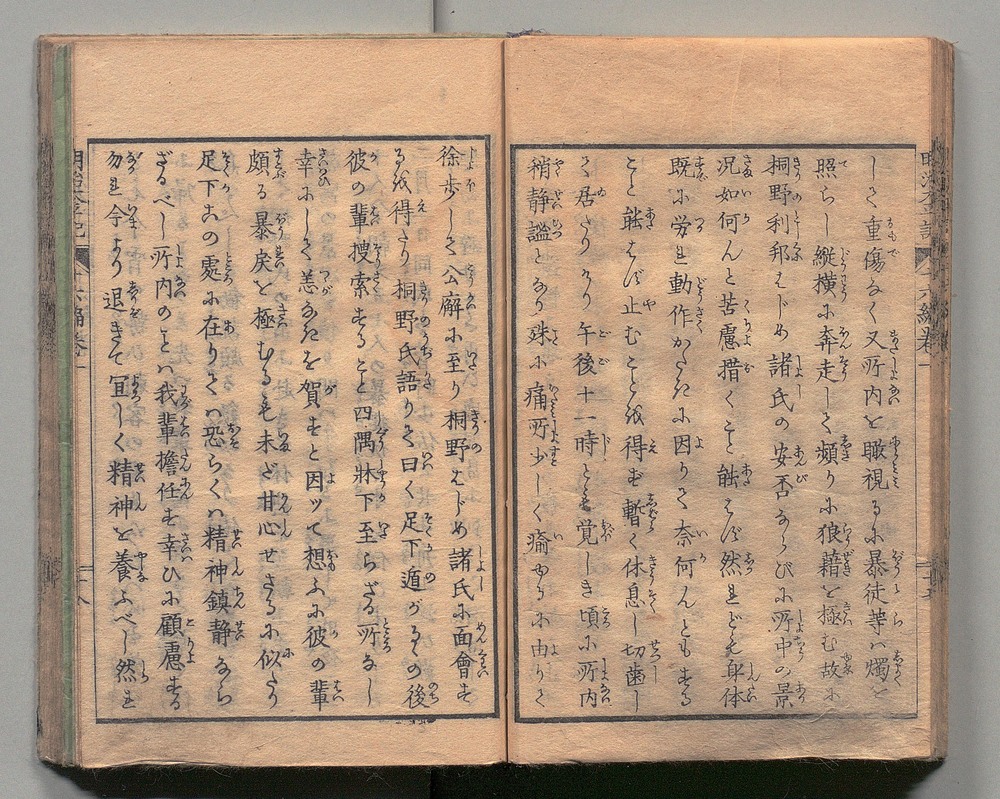 して重傷なく又所内を瞰視るに暴徒等ハ燭を
照らし縦横に奔走して頻りに狼藉を極む故に
桐野利邦はじめ諸氏の安否ならびに所中の景
况如何んと苦慮措くこと能はず然れども身体
既に労れ動作かたきに因りて奈何んともする
こと能はず止むことを得ず暫く休息し切歯し
て居たりけり午後十一時とも覚しき頃に所内
稍静謐となり殊に痛所少しく瘉ゆるに由りて
徐歩して公廨に至り桐野はじめ諸氏に面會す
るを得たり桐野氏語りて曰く足下遁がるゝの後
彼の輩捜索すること四隅牀下至らざる所なし
幸にして恙なきを賀すと因ッて想ふに彼の輩
頗る暴戻を極むるも未だ甘心せざるに似たり
足下この處に在りてハ恐らくハ精神鎮静なら
ざるべし所内のことハ我輩擔任す幸ひに顧慮する
勿れ今より退きて宜しく精神を養ふべし然れ